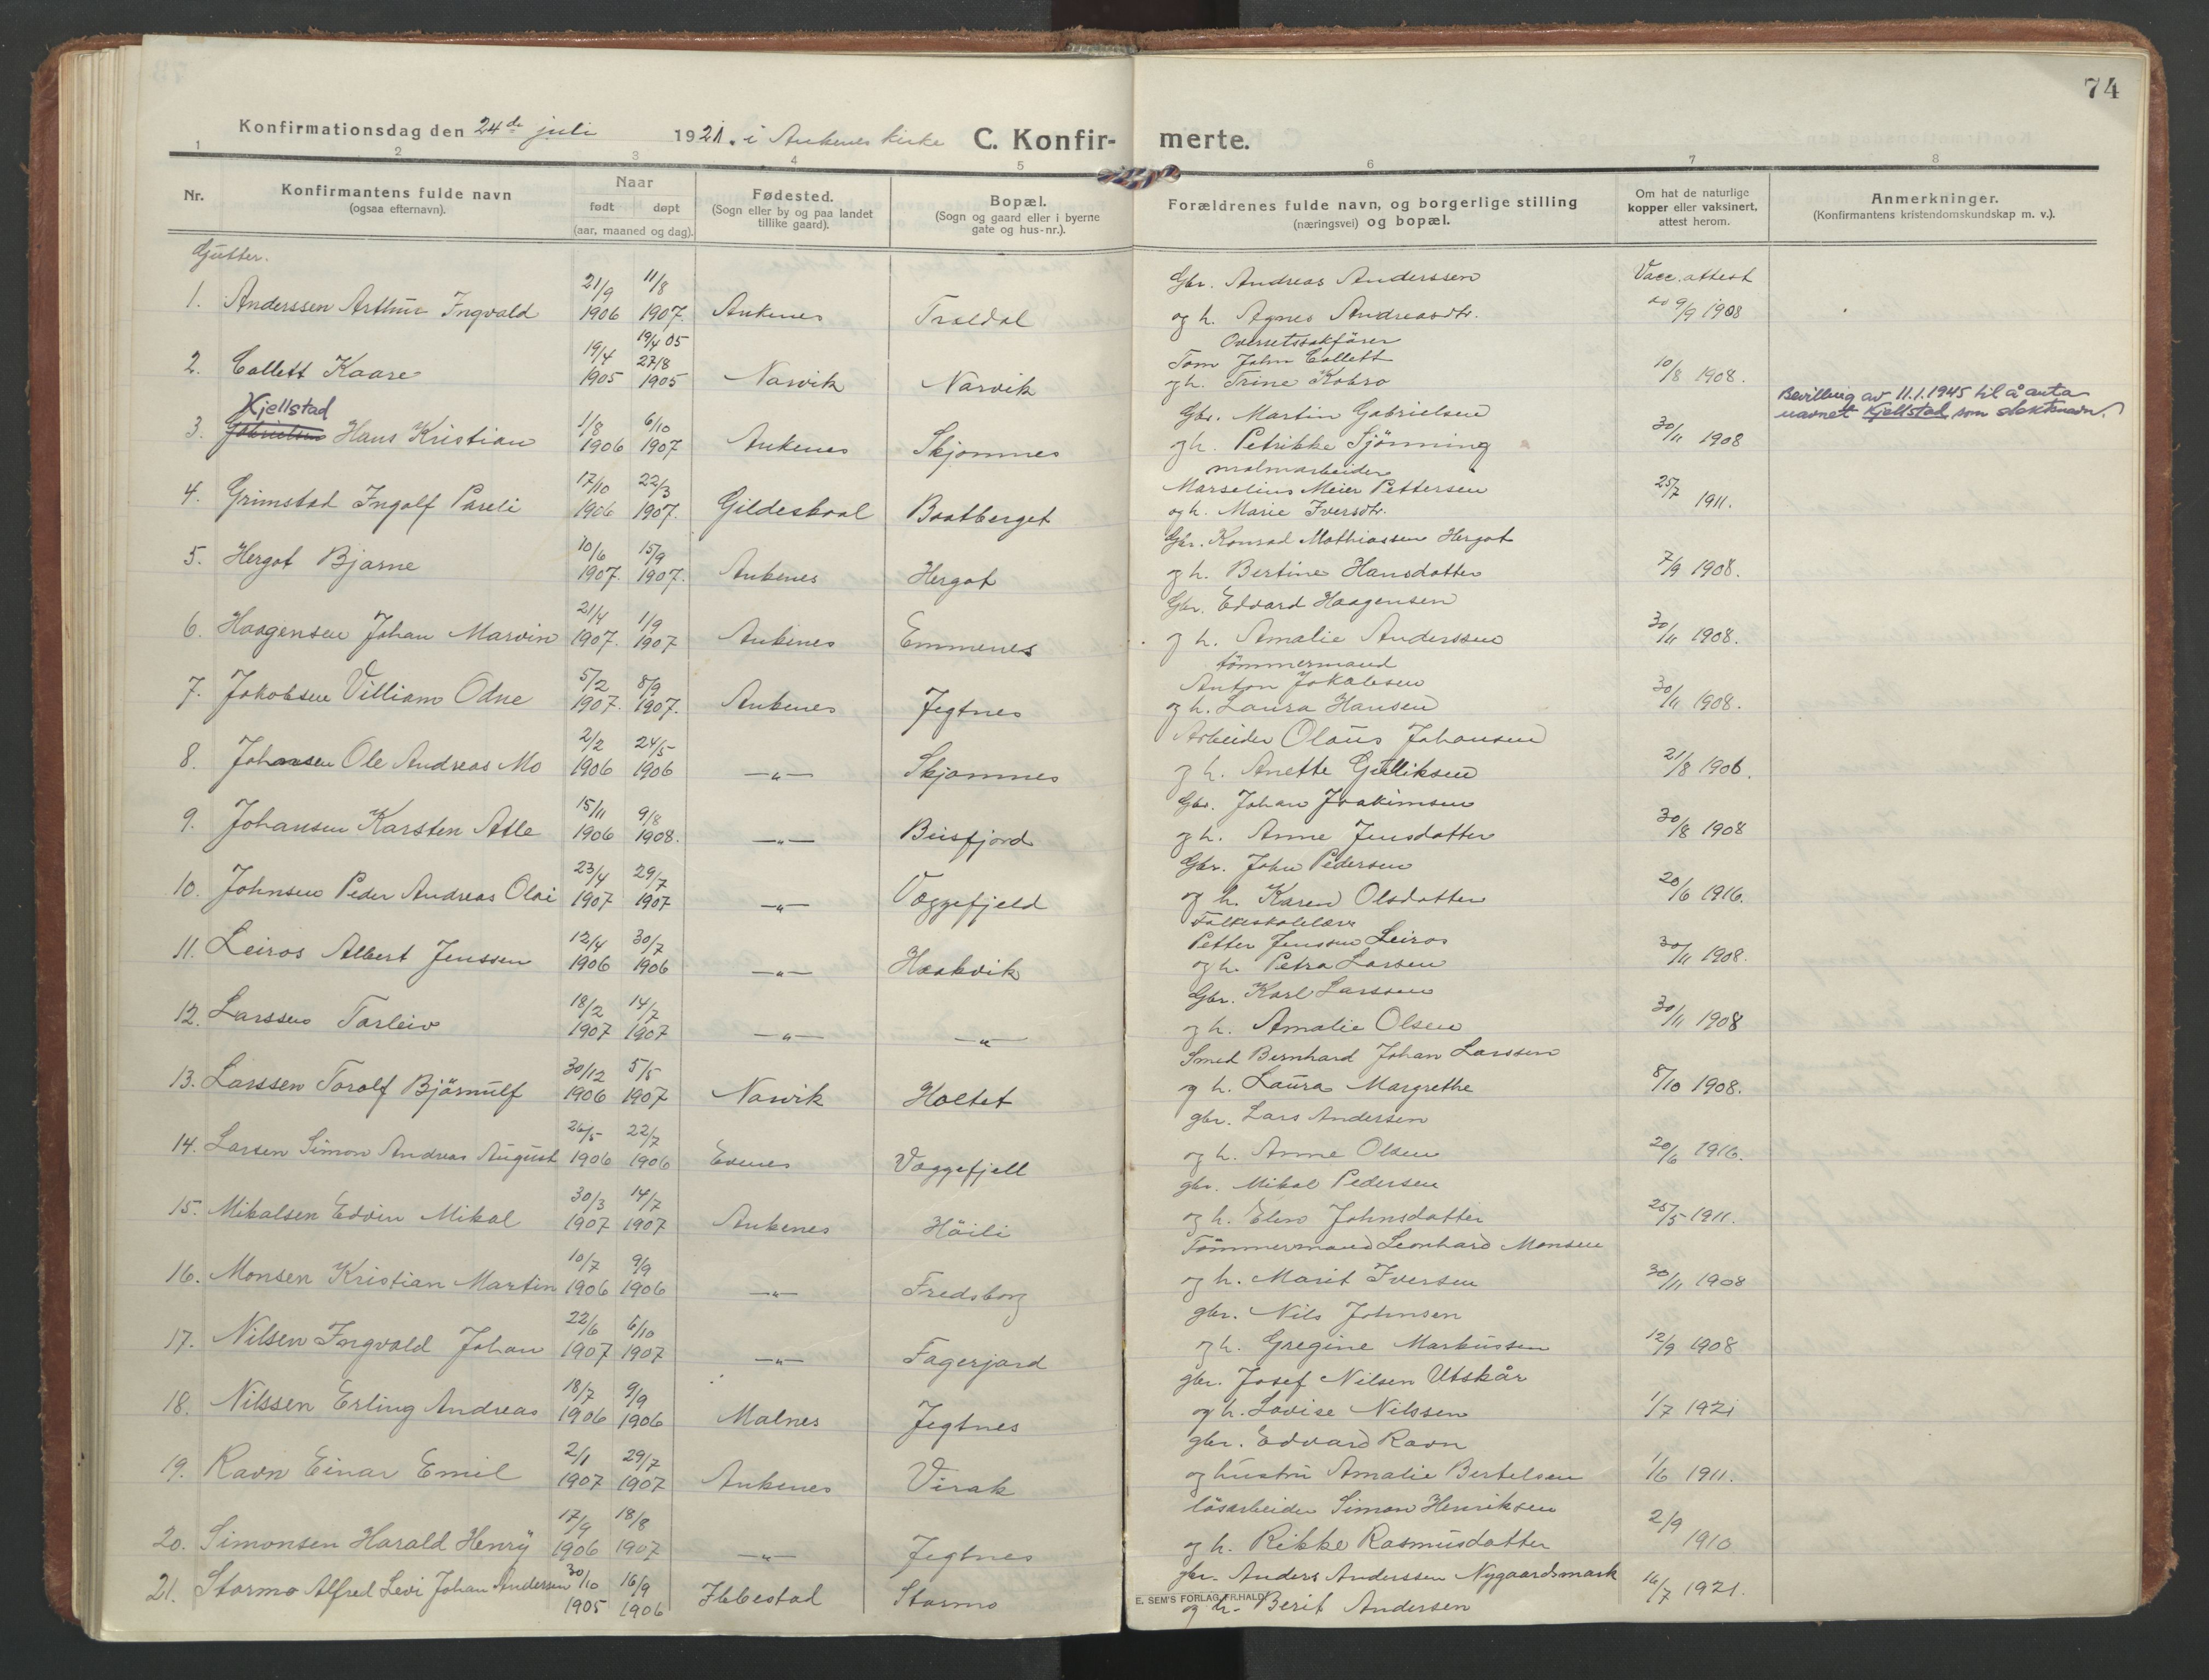 74
Konfirmationsdag den 24de juli 1921. i Ankenes kirke C. Konfirmerte.
1 2 3 4 5 6 7 8
Nr.
Konfirmantens fulde navn
(ogsaa efternavn).
Naar
født døpt
(aar, maaned og dag).
Fødested.
(Sogn eller by og paa landet
tillike gaard).
Bopæl.
(Sogn og gaard eller i byerne
gate og hus-nr.).
Forældrenes fulde navn, og borgerlige stilling
(næringsvei) og bopæl.
Om hat de naturlige
kopper eller vaksinert,
attest herom.
Anmerkninger.
(Konfirmantens kristendomskundskap m. v.).
Gutter.
1. Anderssen Arthur Ingvald 21/9 1906 11/8 1907 Ankenes Traldal Gbr. Andreas Anderssen Vacc. attest
og h. Agnes Andreasdtr. 9/9 1908
2. Collett Kaare 19/4 1905 19/4 05 27/8 1905 Narvik Narvik Overretssakfører
Tom John Collett
og h. Trine Kobro 10/8 1908.
3. Kjellstad Gabrielsen Hans Kristian 1/8 1906 6/10 1907 Ankenes Skjomnes Gbr. Martin Gabrielsen
og h. Petrikke Sjönning 30/11 1908
Bevilling av 11.1.1945 til å anta
navnet Kjellstad som slektsnavn.
4. Grimstad Ingolf Pareli 17/10 1906 22/3 1907. Gildeskaal Baatberget malmarbeider
Marselius Meier Pettersen
og h. Marie Iversdtr. 25/7 1911.
5. Hergot Bjarne 10/6 1907. 15/9 1907. Ankenes Hergot Gbr. Konrad Mathiassen Hergot
og h. Bertine Hansdatter 7/9 1908.
6. Haagensen Johan Marvin 21/4 1907. 1/9 1907 Ankenes Emmenes Gbr. Edvard Haagensen
og h. Amalie Anderssen 30/11 1908.
7. Jakobsen Villiam Odne 5/2 1907. 8/9 1907. Ankenes Jegtnes tømmermand
Anton Jakobsen
og h. Laura Hansen 30/11 1908.
8. Johansen Ole Andreas Mo 2/2 1906 24/5 1906 —"— Skjomnes Arbeider Olaus Johansen
og h. Anette Gulliksen 21/8 1906.
9. Johansen Karsten Atle 15/11 1906 9/8 1908. —"— Beisfjord Gbr. Johan Joakimsen
og h. Anne Jensdatter 30/8 1908
10. Johnsen Peder Andreas Olai 23/4 1907 29/7 1907 —"— Væggefjeld Gbr. John Pedersen
og h. Karen Olsdatter 20/6 1916.
11. Leiros Albert Jenssen 12/4 1906 30/7 1906 —"— Haakvik Folkeskolelærer
Petter Jenssen Leiros
og h. Petra Larsen 30/11 1908.
12. Larssen Torleiv 18/2 1907 14/7 1907 —"— —"— Gbr. Karl Larssen
og h. Amalie Olsen 30/11 1908
13. Larssen Torolf Bjørnulf 30/12 1906 5/5 1907 Narvik Holtet Smed Bernhard Johan Larssen
og h. Laura Margrethe 8/10 1908.
14. Larsen Simon Andreas August 26/5 1906 22/7 1906 Evenes Væggefjell gbr. Lars Andersen
og h. Anne Olsen 20/6 1916.
15. Mikalsen Edvin Mikal 30/3 1907 14/7 1907 Ankenes Höili gbr. Mikal Pedersen
og h. Elen Johnsdatter 25/5 1911.
16. Monsen Kristian Martin 10/7 1906 9/9 1906 —"— Fredsborg Tømmermand Leonhard Monsen
og h. Marit Iversen 30/11 1908
17. Nilsen Ingvald Johan 22/6 1907 6/10 1907 —"— Fagerjord gbr. Nils Johnsen
og h. Gregine Markussen 12/9 1908
18. Nilssen Erling Andreas 18/7 1906 9/9 1906 Malnes Jegtnes gbr. Josef Nilsen Utskår
og h. Lovise Nilssen 1/7 1921
19. Ravn Einar Emil 2/1 1907 29/7 1907 Ankenes Virak gbr. Edvard Ravn
og hustru Amalie Bertelsen 1/6 1911.
20. Simonsen Harald Henry 17/9 1906 18/8 1907 —"— Jegtnes løsarbeider Simon Henriksen
og h. Rikke Rasmusdatter 2/9 1910
21. Stormo Alfred Levi Johan Andersen 30/10 1905 16/9 1906 Ibbestad Stormo gbr. Anders Anderssen Nygaardsmark
og h. Berit Andersen 16/7 1921.
E. SEM'S FORLAG, FR.HALD